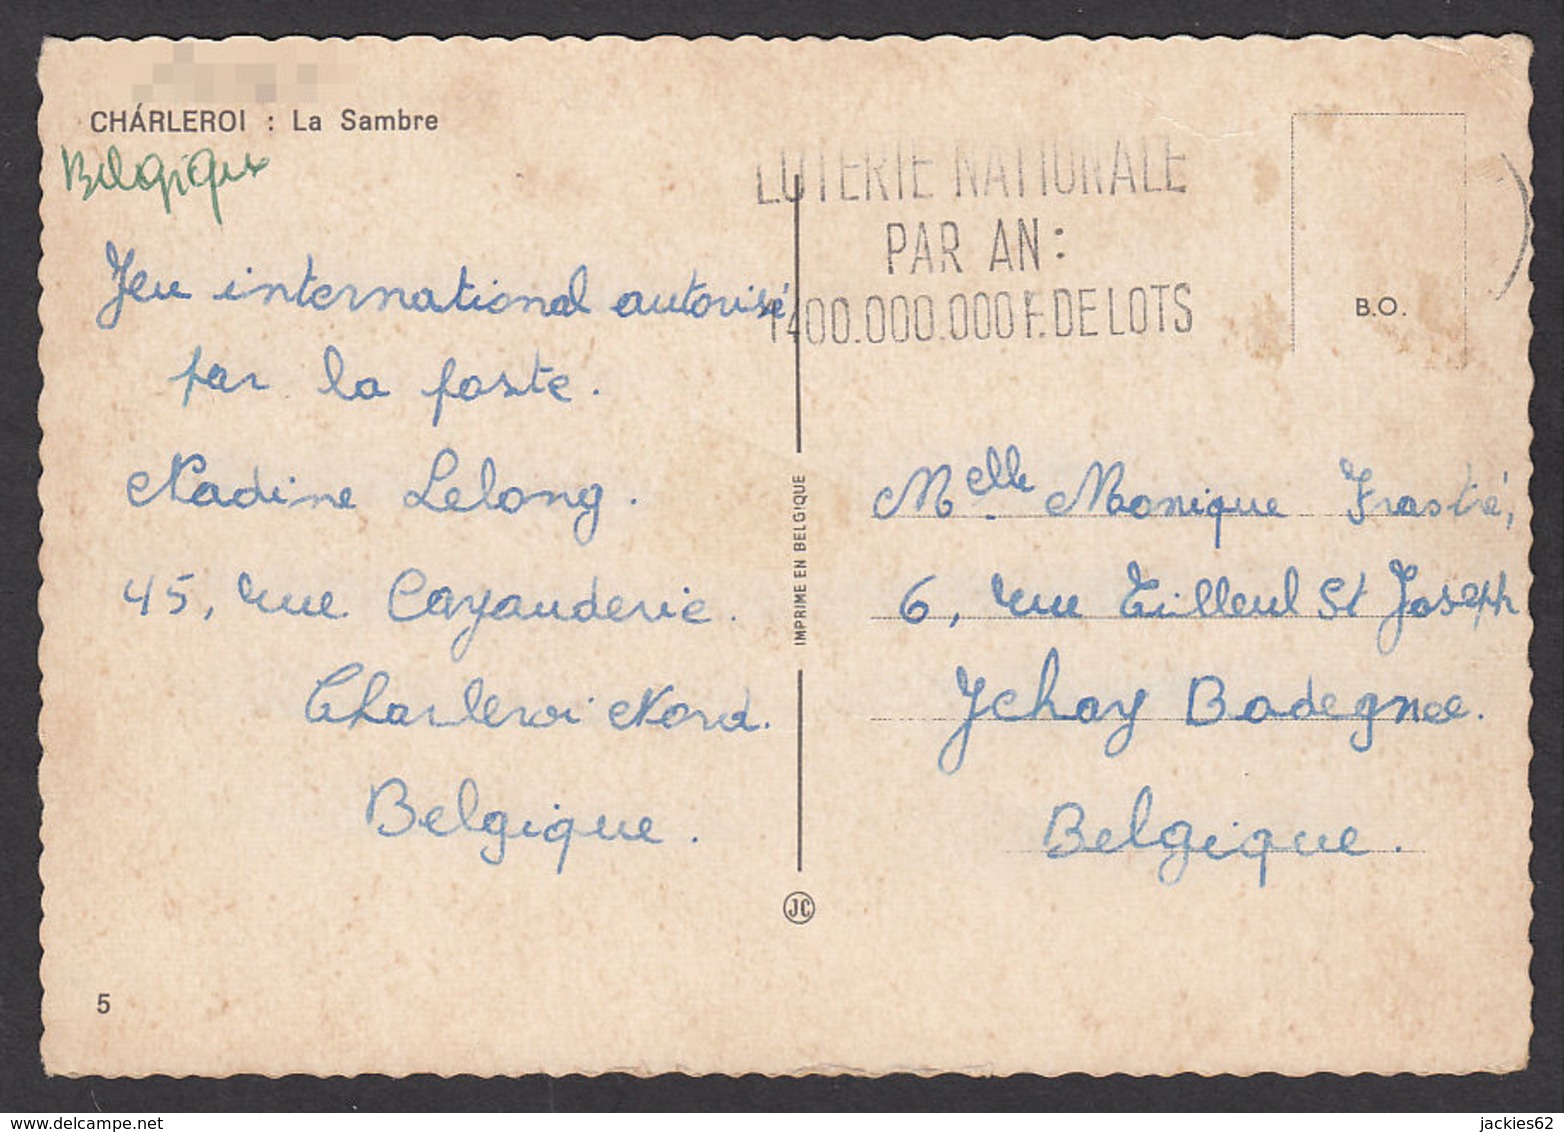 CHÁRLEROI : La Sambre
Belgique
Jeu international autorisé
par la poste.
Nadine Lelong.
45, rue Cayauderie.
Charleroi Nord.
Belgique.
5
IMPRIME EN BELGIQUE
JC
LOTERIE NATIONALE
PAR AN :
1400.000.000 F. DE LOTS
B.O.
Melle Monique Frastré,
6, rue Tilleul St Joseph
Jehay Bodegnée.
Belgique.
jackies62